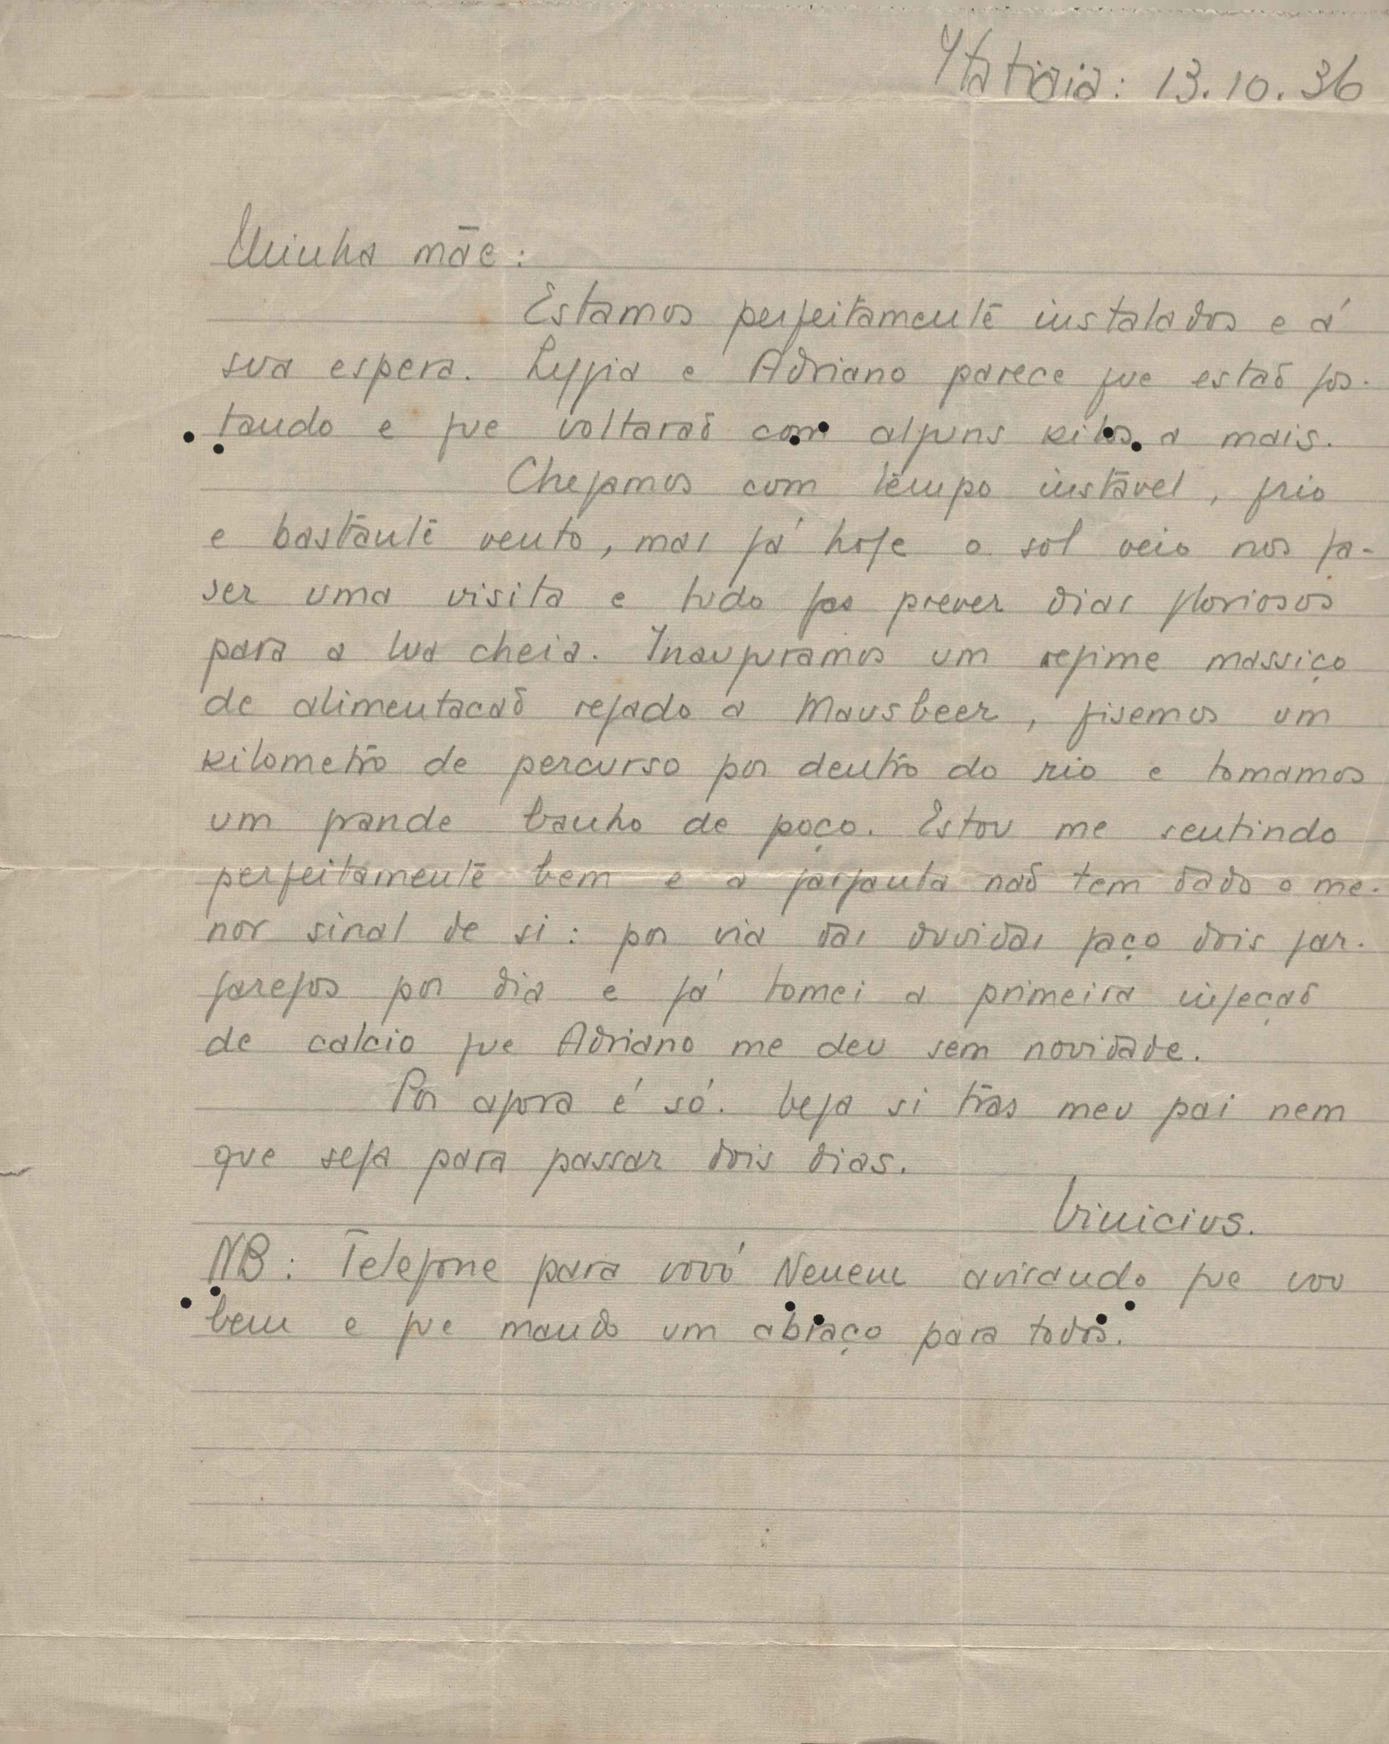 Itatiaia: 13.10.36
Minha mãe:
Estamos perfeitamente instalados e á
sua espera. Lygia e Adriano parece que estaõ gos-
tando e que voltaraõ com alguns kilos a mais.
Chegamos com tempo instavel, frio
e bastante vento, mas já hoje o sol veio nos fa-
ser uma visita e tudo faz prever dias gloriosos
para a lua cheia. Inauguramos um regime massiço
de alimentacaõ regado a Mausbeer, fisemos um
kilometro de percurso por dentro do rio e tomamos
um grande banho de poço. Estou me sentindo
perfeitamente bem e a garganta naõ tem dado o me-
nor sinal de si: por via das duvidas faço dois gar-
garejos por dia e já tomei a primeira injeçaõ
de calcio que Adriano me deu sem novidade.
Por agora é só. Veja si tras meu pai nem
que seja para passar dois dias.
Vinicius.
NB: Telefone para vovó Neném avisando que vou
bem e que mando um abraço para todos.